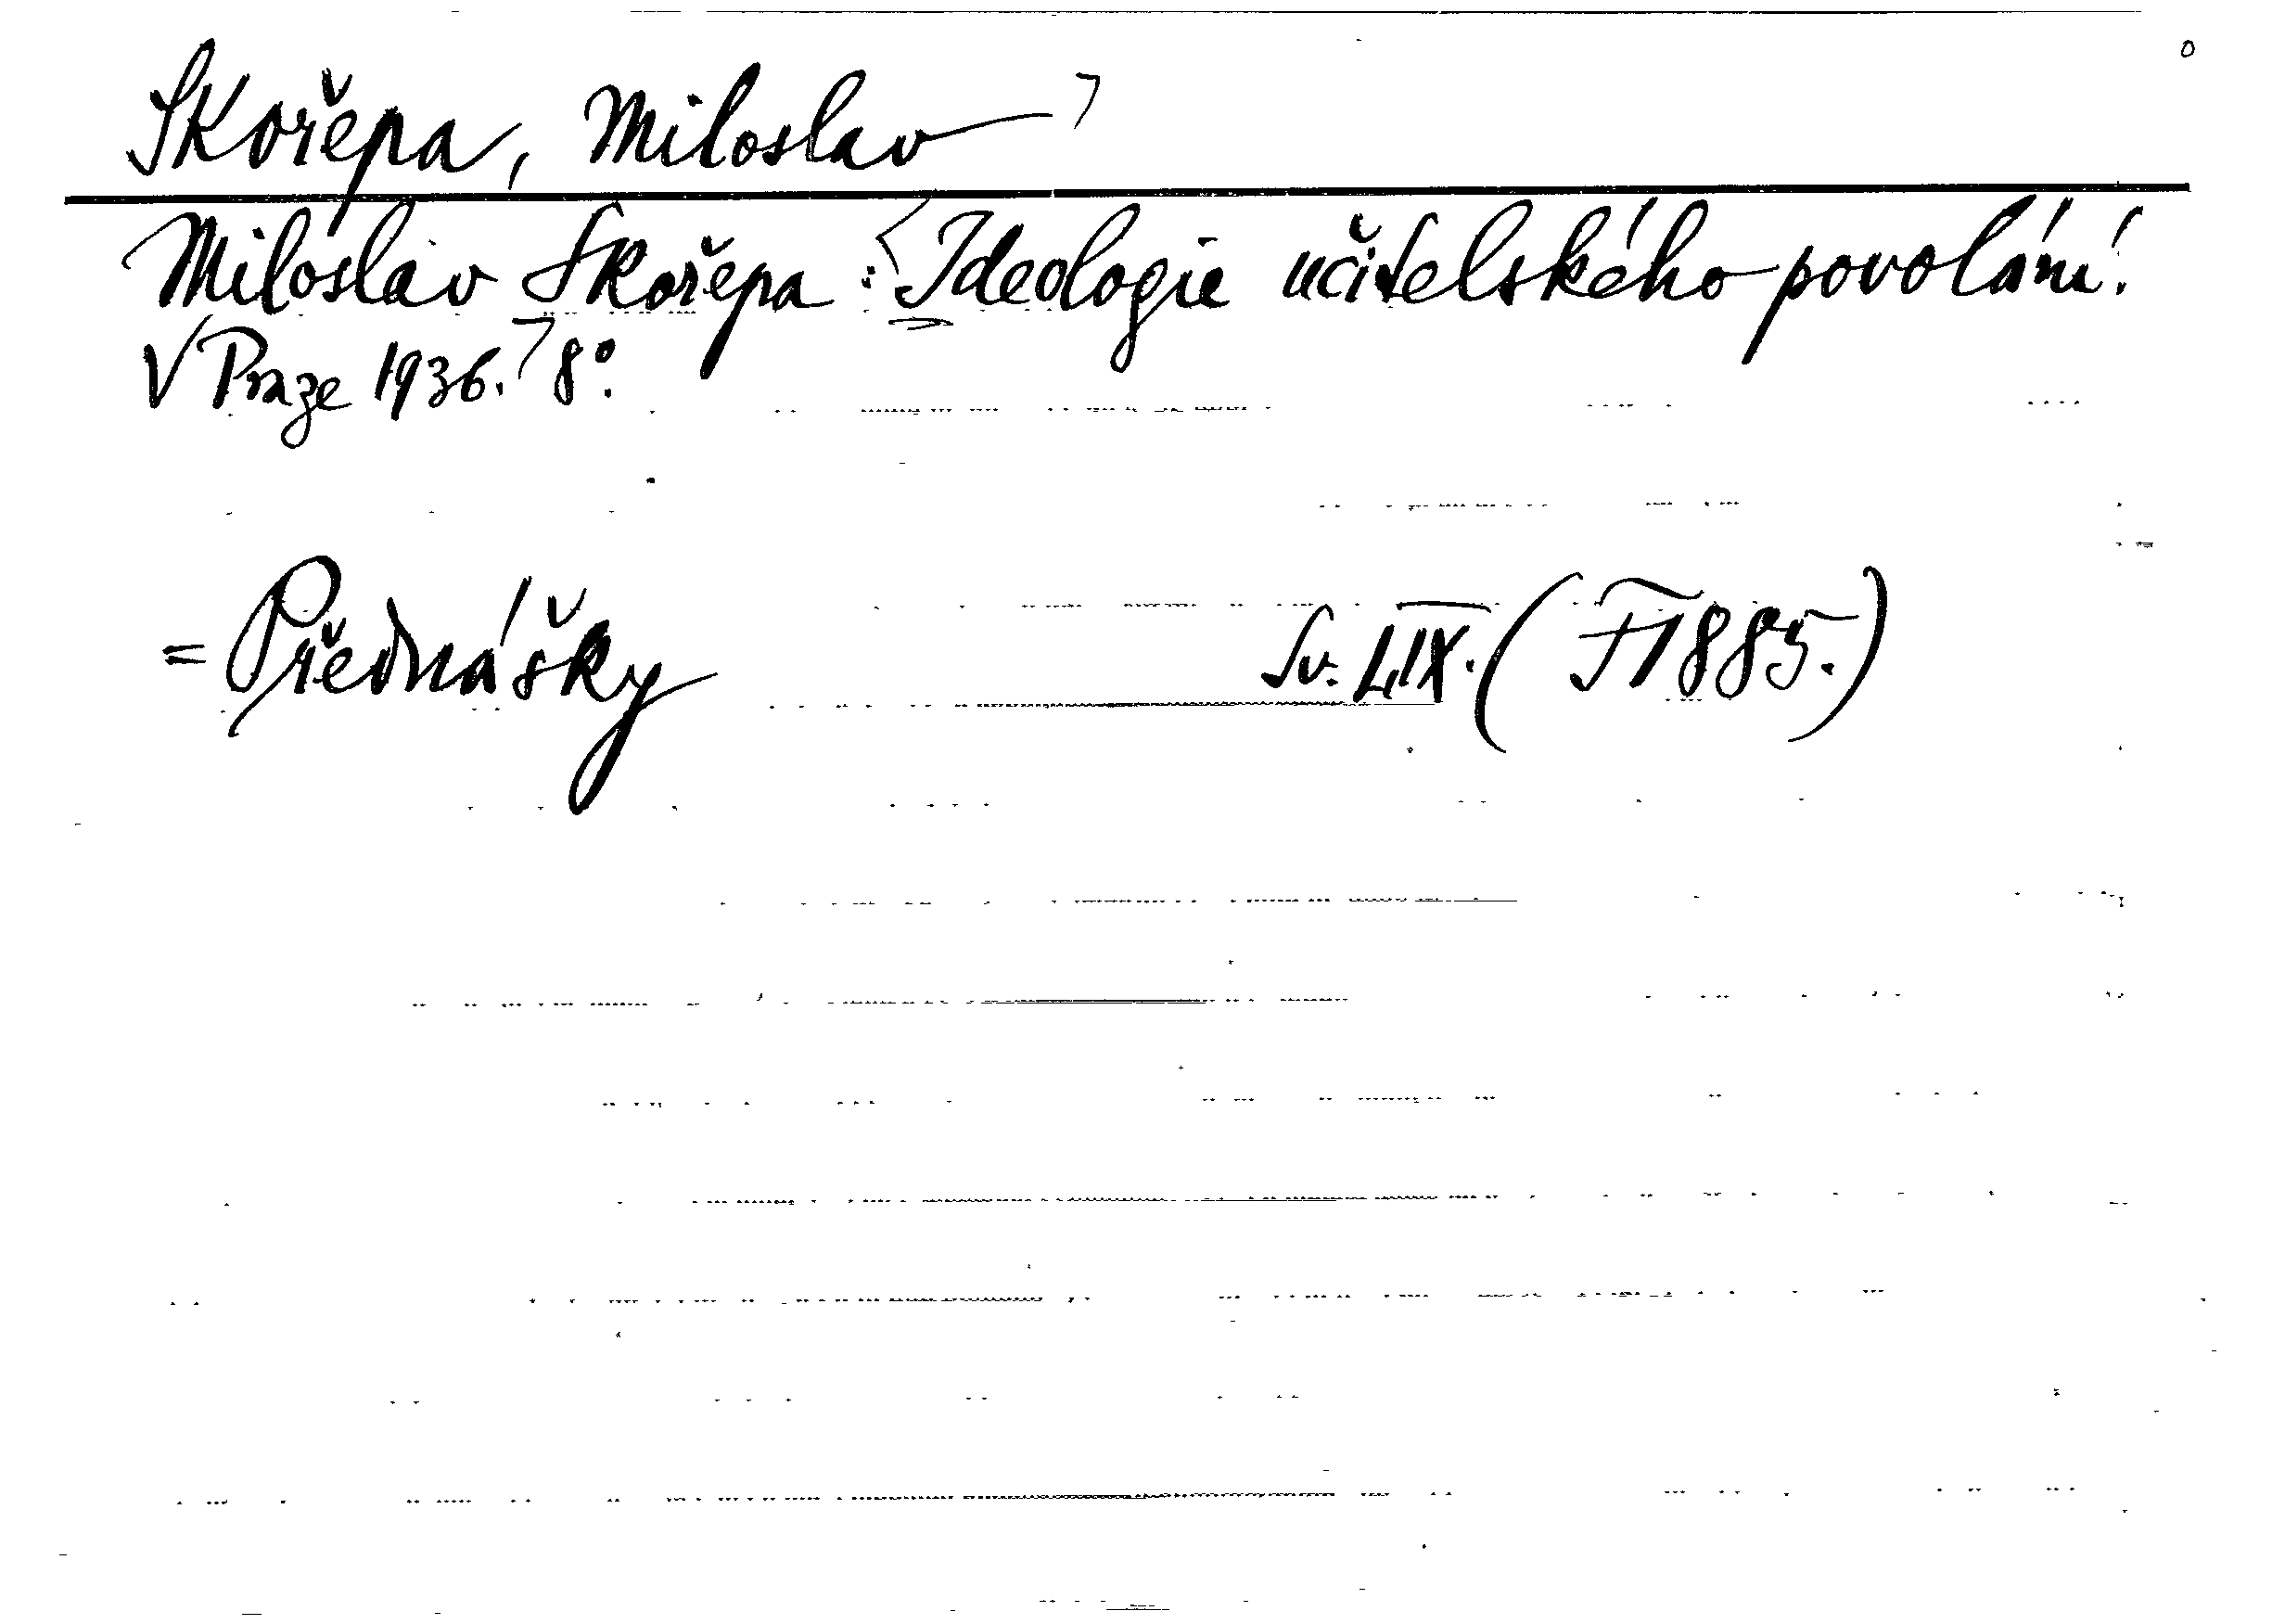 Skořepa, Miloslav
Miloslav Skořepa: Ideologie učitelského povolání.
V Praze 1936. 8°.
= Přednášky Sv. LIX. (F1885.)